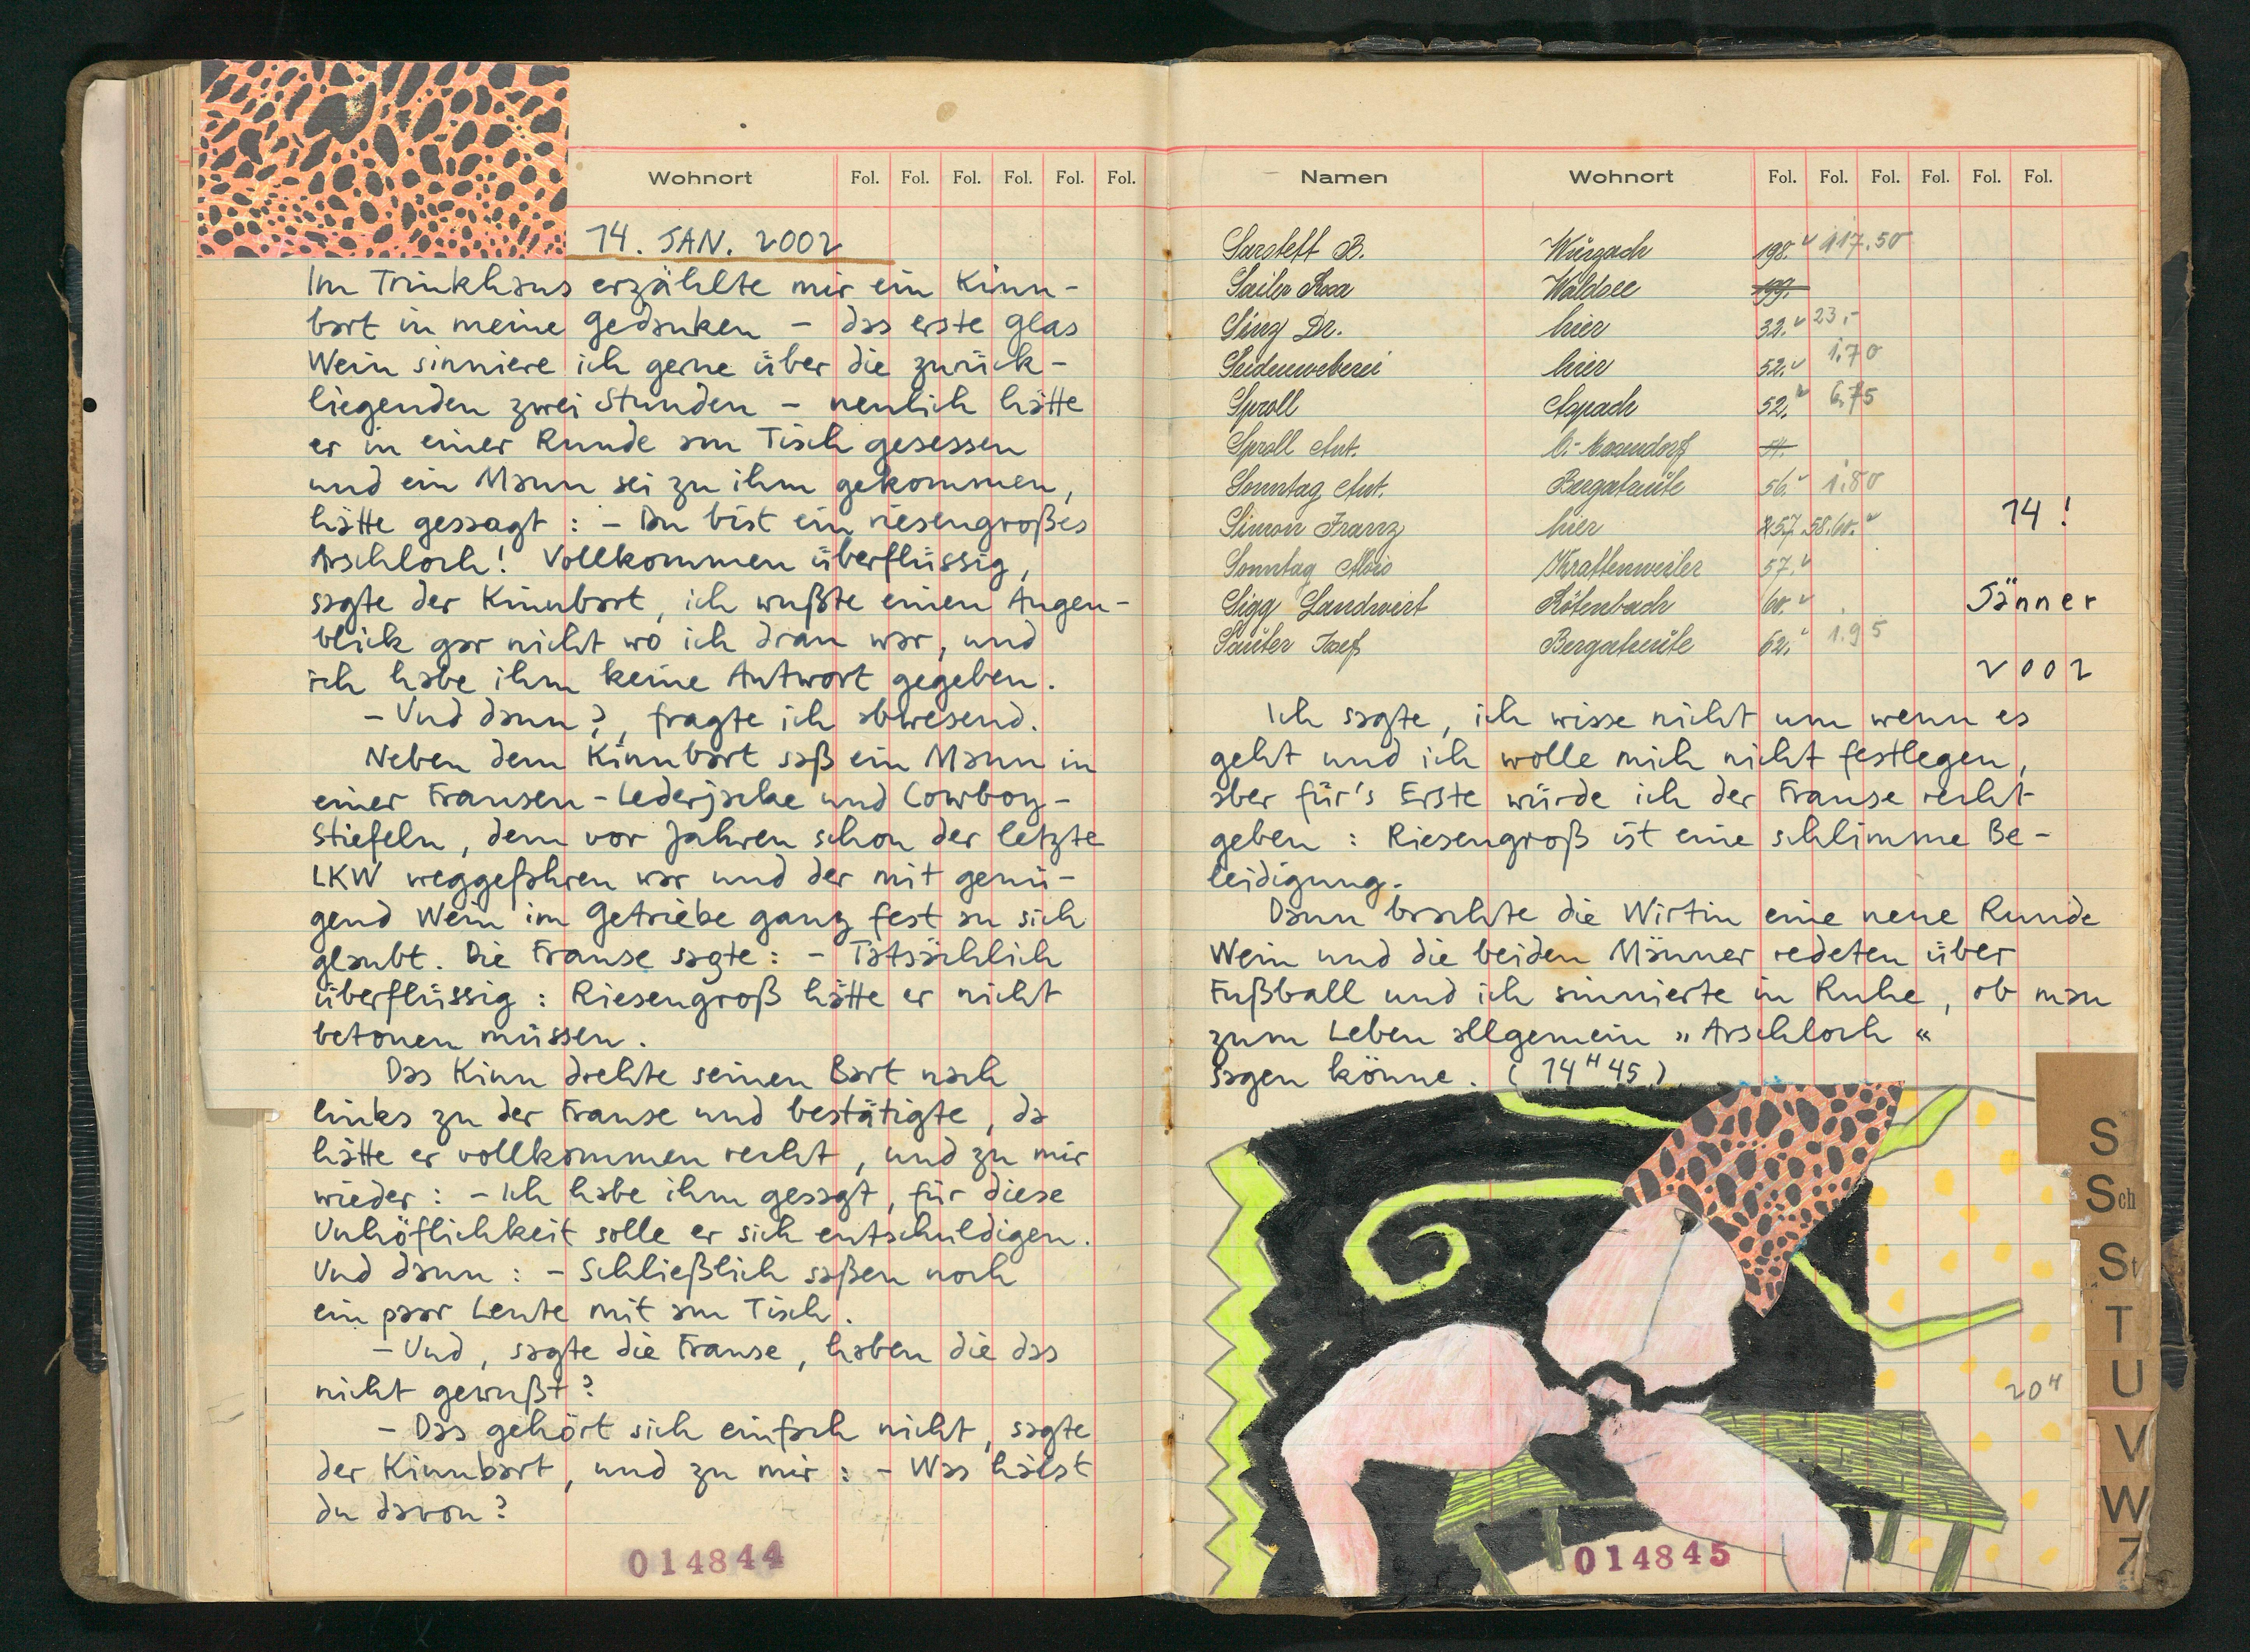 Wohnort Fol. Fol. Fol. Fol. Fol. Fol.
14. JAN. 2002
Im Trinkhaus erzählte mir ein Kinn-
bart in meine Gedanken – das erste Glas
Wein sinniere ich gerne über die zurück-
liegenden zwei Stunden – neulich hätte
er in einer Runde am Tisch gesessen
und ein Mann sei zu ihm gekommen,
hätte gesagt : – Du bist ein riesengroßes
Arschloch! Vollkommen überflüssig,
sagte der Kinnbart, ich wußte einen Augen-
blick gar nicht wo ich dran war, und
ich habe ihm keine Antwort gegeben.
– Und dann?, fragte ich abwesend.
Neben dem Kinnbart saß ein Mann in
einer Fransen-Lederjacke und Cowboy-
stiefeln, dem vor Jahren schon der letzte
LKW weggefahren war und der mit genü-
gend Wein im Getriebe ganz fest an sich
glaubt. Die Franse sagte : – Tatsächlich
überflüssig : Riesengroß hätte er nicht
betonen müssen.
Das Kinn drehte seinen Bart nach
links zu der Franse und bestätigte, da
hätte er vollkommen recht, und zu mir
wieder : – Ich habe ihm gesagt, für diese
Unhöflichkeit solle er sich entschuldigen.
Und dann : – Schließlich saßen noch
ein paar Leute mit am Tisch.
– Und, sagte die Franse, haben die das
nicht gewußt?
– Das gehört sich einfach nicht, sagte
der Kinnbart, und zu mir : – Was hälst
du davon?
014844
Namen Wohnort Fol. Fol. Fol. Fol. Fol. Fol.
B. Wurzach 198. 117.50
Rosa Waldsee 199.
Sinz Dr. hier 32. 23,-
Seidenweberei hier 52. 1.70
Sproll Aspach 52. 6.75
Sproll Ant. 54.
Sonntag Ant. Bergatreute 56. 1.80
Simon Franz hier 57. 58. 60.
14!
Sonntag Alois Krattenweiler 57.
Sigg Landwirt Rötenbach 60.
Jänner
Sauter Josef Bergatreute 62. 1.95
2002
Ich sagte, ich wisse nicht um wenn es
geht und ich wolle mich nicht festlegen,
aber für's Erste würde ich der Franse recht
geben : Riesengroß ist eine schlimme Be-
leidigung.
Dann brachte die Wirtin eine neue Runde
Wein und die beiden Männer redeten über
Fußball und ich sinnierte in Ruhe, ob man
zum Leben allgemein „Arschloch“
sagen könne. (14H45)
S
Sch
St
T
U
20H
V
W
Z
014845